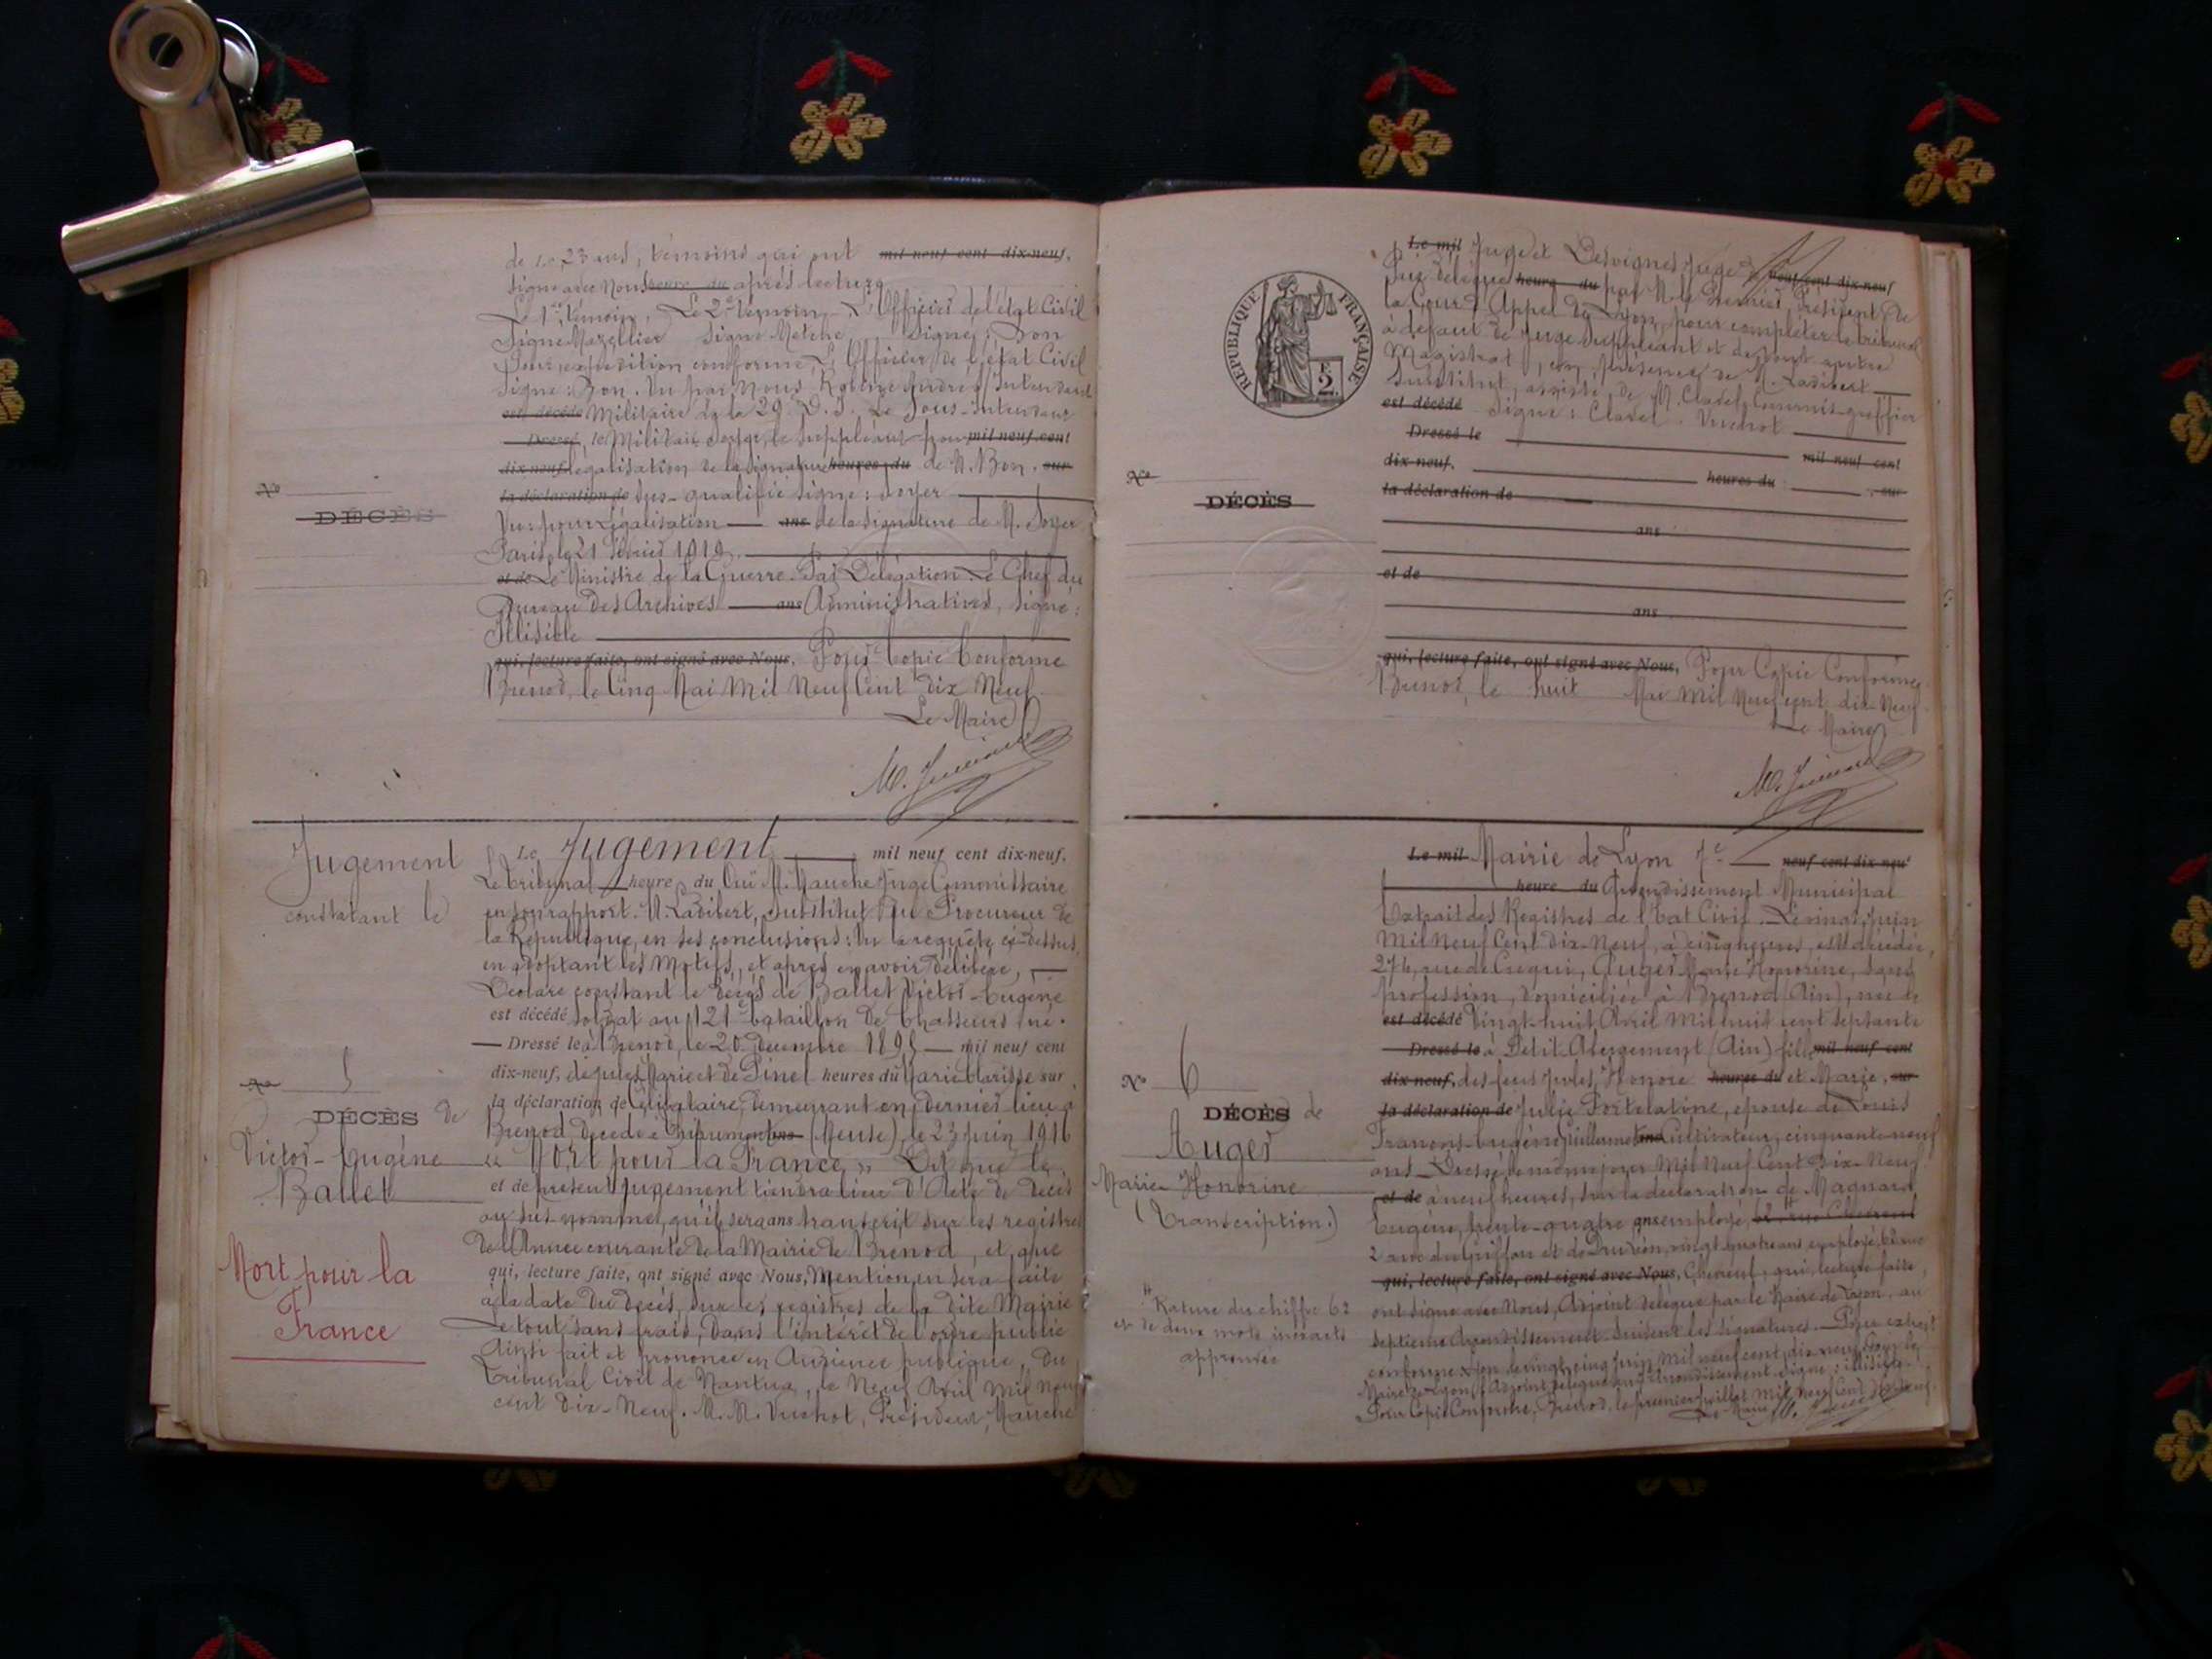 de 23 ans, témoins qui ont mil neuf cent dix-neuf,
signé avec Nous heure du après lecture
Le 1er témoin, Le 2e témoin, L'Officier de l'état Civil
Signé Mazellier Signé Metche Signé: Bon
Pour expédition conforme, L'Officier de l'état Civil
Signé: Bon. Vu par Nous, André, Intendant
est décédé Militaire de la 29. D.I. Le Sous-Intendant
Dressé le Militaire le suppléant pour mil neuf cent
dix-neuf, légalisation de la signature heures du de M. Bon. sur
la déclaration de sus-qualifié signé: Soyer
Vu: pour Légalisation ans de la signature de M. Soyer
Paris, le 21 février 1919.
et de Le Ministre de la Guerre. Par Délégation Le Chef du
Bureau des Archives ans Administratives, signé:
Illisible
No
DÉCÈS
qui, lecture faite, ont signé avec Nous, Pour Copie Conforme
Brénod, le Cinq Mai Mil Neuf Cent Dix Neuf.
Le Maire
Jugement
constatant le
No 5
DÉCÈS de
Victor-Eugène
Ballet
Mort pour la
France
Le Jugement mil neuf cent dix-neuf,
Le Tribunal heure du Ouï M. Mauche Juge Commissaire
en son rapport. M. Ladibert, Substitut du Procureur de
la République, en ses conclusions: Vu la requête ci-dessus
en adoptant les Motifs, et après en avoir délibéré,
Déclare constant le décès de Ballet Victor-Eugène
est décédé soldat au 121e bataillon de Chasseurs né
Dressé le à Brénod, le 20 décembre 1895 mil neuf cent
dix-neuf, de Marie et de Pinel heures du Marie Clarisse sur
la déclaration de célibataire, demeurant en dernier lieu à
Brénod, décédé à ans (Meuse), le 23 Juin 1916
"Mort pour la France" Dit que le
et de présent jugement tiendra lieu d'Acte de décès
au sus-nommé, qu'il sera ans transcrit sur les registres
de l'Année courante de la Mairie de Brénod, et que
qui, lecture faite, ont signé avec Nous, Mention en sera faite
à la date du décès, sur les registres de la dite Mairie
Le tout sans frais, dans l'intérêt de l'ordre public
Ainsi fait et prononcé en Audience publique, du
Tribunal Civil de Nantua, le Neuf Avril Mil Neuf
cent Dix-Neuf. M.M. Vuchot, Président, Mauche
RÉPUBLIQUE FRANÇAISE
2 F
Le mil Juge et Desvignes Juge neuf cent dix-neuf
heure du par M. le Premier Président de
la Cour d'Appel de Lyon, pour compléter le tribunal
à défaut de Juge Suppléant et de tout autre
Magistrat, en présence de M. Ladibert
Substitut, assisté de M. Clavel, Commis-greffier
est décédé Signé: Clavel. Vuchot
Dressé le mil neuf cent
dix-neuf, heures du sur
la déclaration de
ans
et de
ans
No
DÉCÈS
qui, lecture faite, ont signé avec Nous, Pour Copie Conforme
Brénod, le huit Mai Mil Neuf cent dix-Neuf
Le Maire
No 6
DÉCÈS de
Auger
Marie Honorine
(Transcription.)
Rature du chiffre 62
et de deux mots inexacts
approuvée
Le mil Mairie de Lyon 7e neuf cent dix-neuf
heure du Arrondissement Municipal
Extrait des Registres de l'Etat Civil. Le vingt juin
Mil Neuf Cent Dix-Neuf, à cinq heures, est décédée,
276, rue de Créqui, Auger Marie Honorine, sans
profession, domiciliée à Brénod (Ain), née le
est décédé Vingt-huit Avril Mil huit cent septante
Dressé le à Petit-Abergement (Ain) fille mil neuf cent
dix-neuf, des feus Jules, Honoré heures du et Marie, sur
la déclaration de Julie Portalatine, épouse de Louis
François-Eugène Guillermet ans Cultivateur, cinquante-neuf
ans. Dressé le même jour Mil Neuf Cent Dix-Neuf
et de à neuf heures, sur la déclaration de Magnard
Eugène, trente-quatre ans employé, 62, rue Chevreul
2 rue du Griffon et de vingt-quatre ans, employé, 62 rue
qui, lecture faite, ont signé avec Nous, Chevreul, qui, lecture faite,
ont signé avec Nous, Adjoint délégué par le Maire de Lyon, au
septième Arrondissement. Suivent les signatures. Pour extrait
conforme Lyon le vingt-cinq Juin Mil neuf cent dix-neuf Pour le
Maire de Lyon, l'Adjoint délégué au Arrondissement. Signé: illisible.
Pour Copie Conforme, Brénod, le premier Juillet Mil Neuf Cent Dix-Neuf.
Le Maire